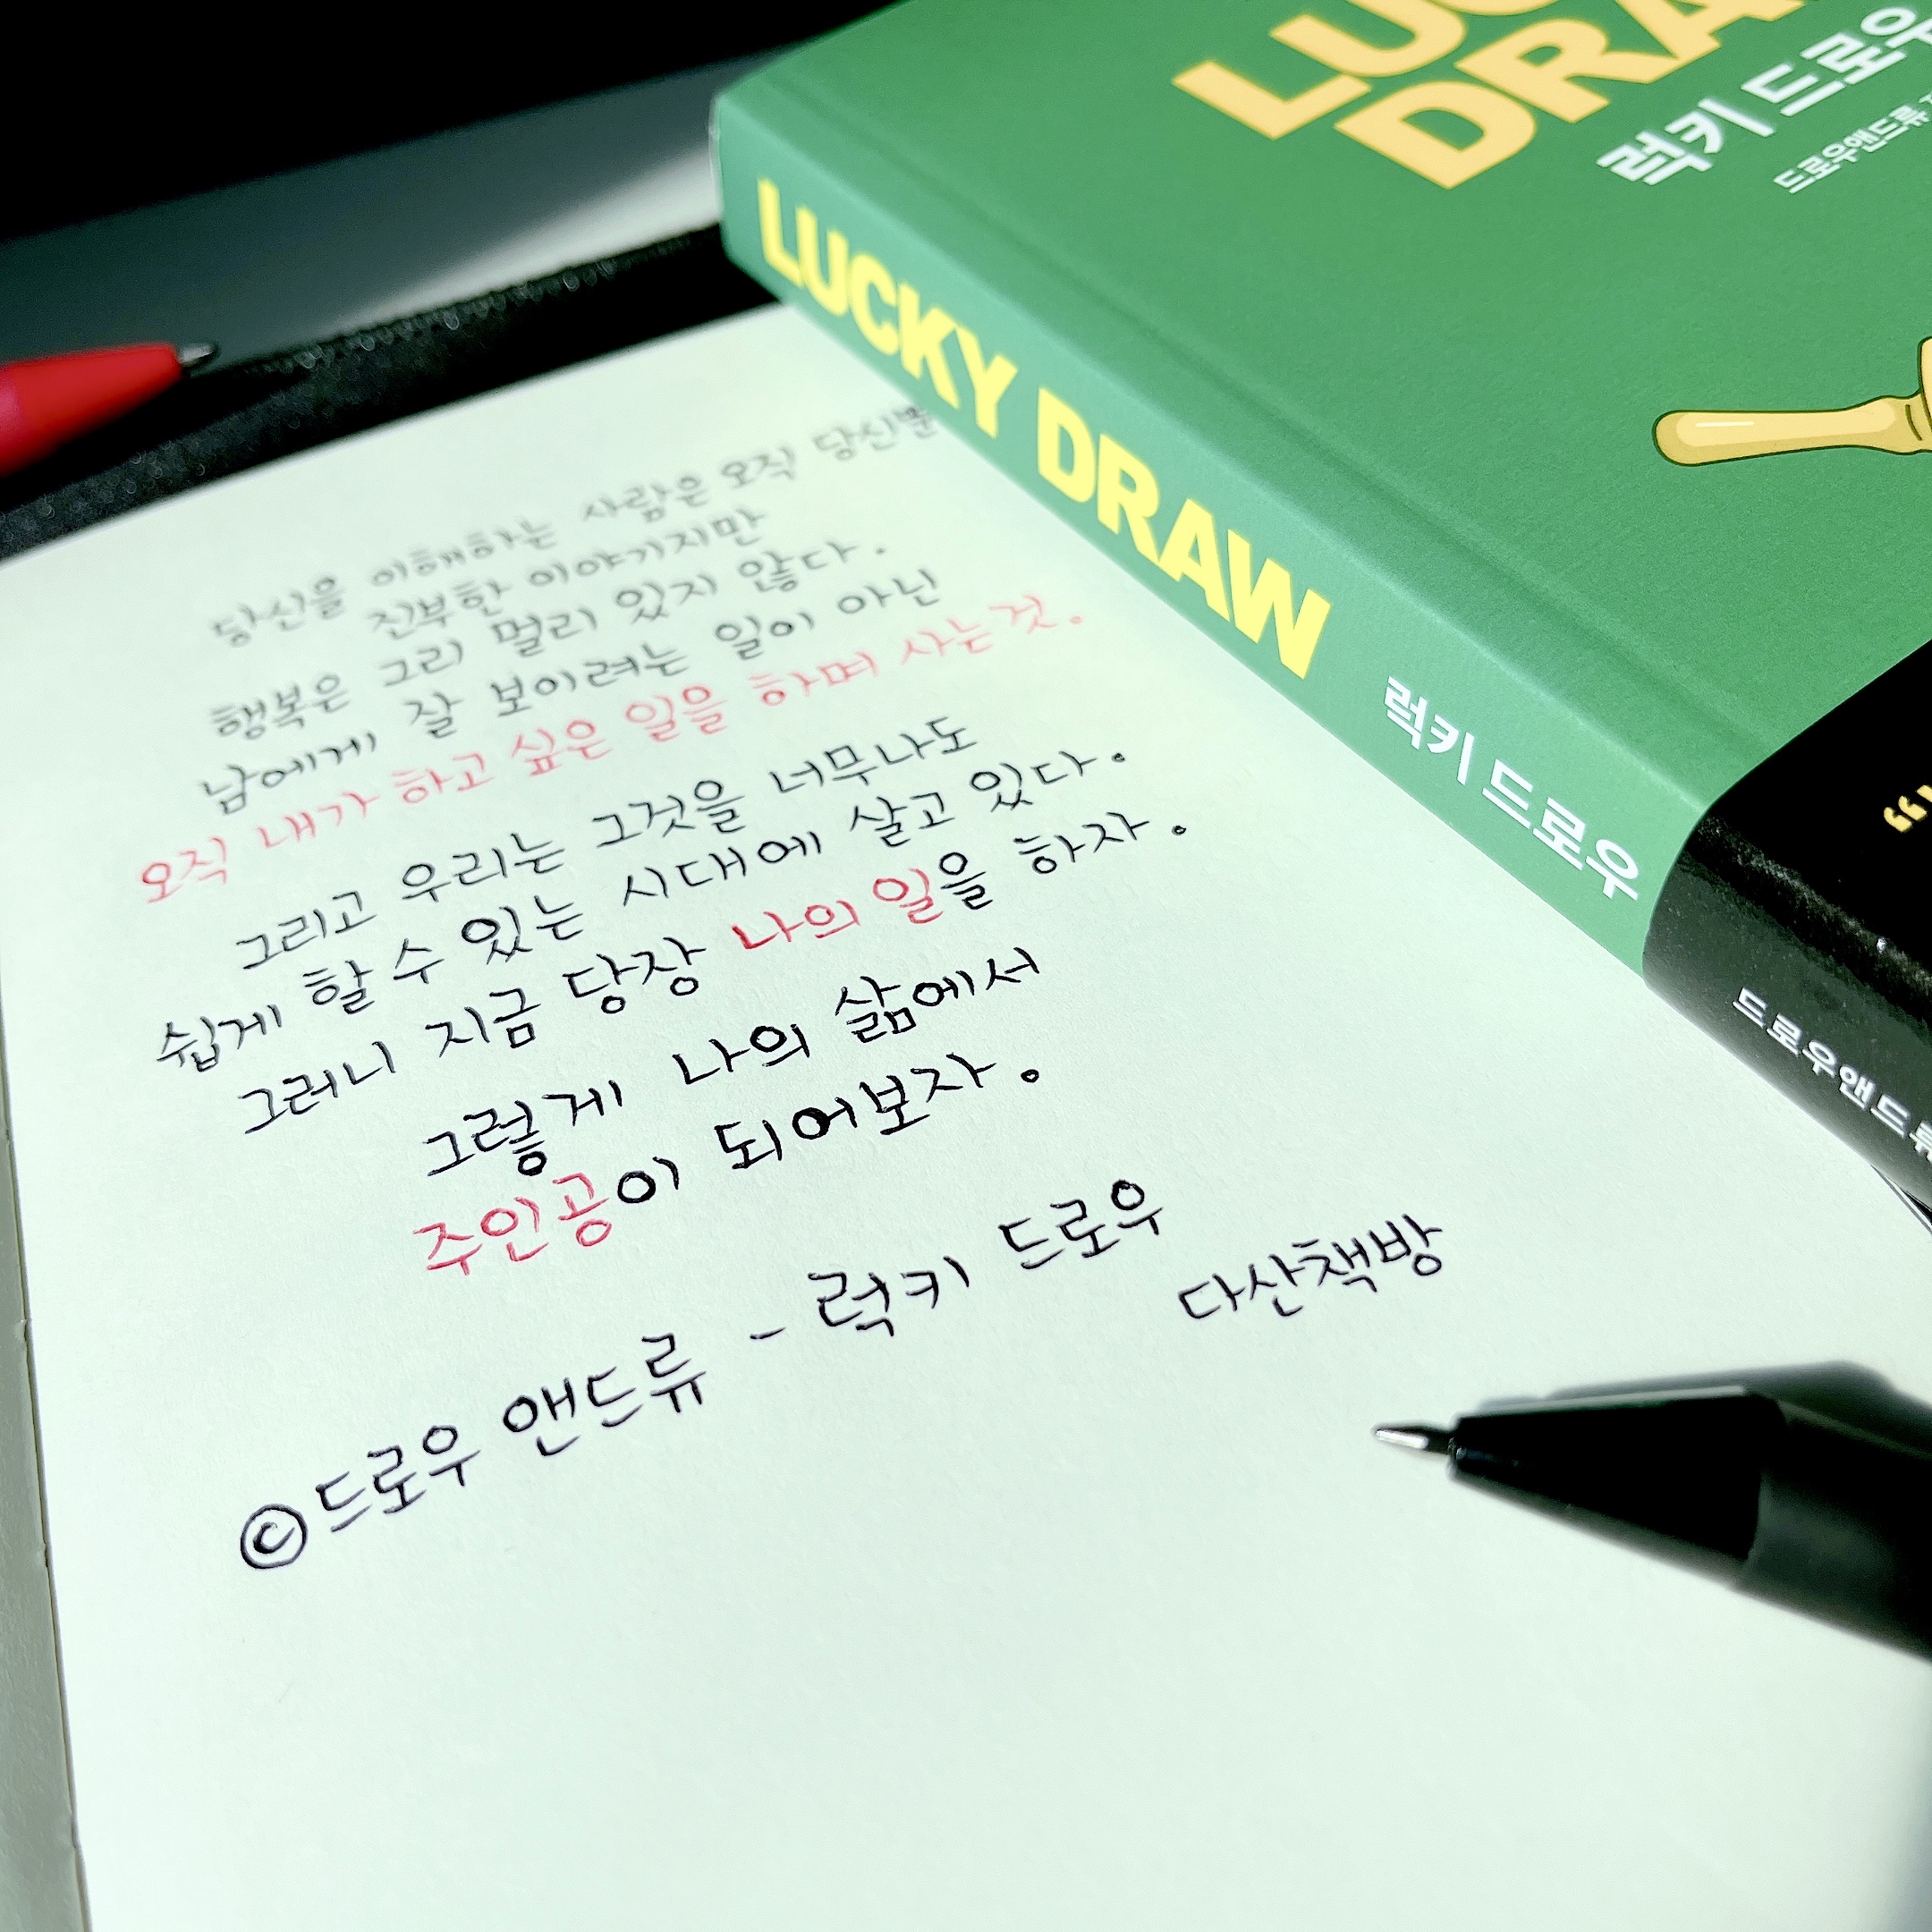 당신을 이해하는 사람은 오직 당신뿐
진부한 이야기지만
행복은 그리 멀리 있지 않다.
남에게 잘 보이려는 일이 아닌
오직 내가 하고 싶은 일을 하며 사는 것.
그리고 우리는 그것을 너무나도
쉽게 할 수 있는 시대에 살고 있다.
그러니 지금 당장 나의 일을 하자.
그렇게 나의 삶에서
주인공이 되어보자.
ⓒ드로우 앤드류 - 럭키 드로우
다산책방
DRA
럭키 드로우
드로우앤드류
LUCKY DRAW 럭키 드로우
드로우앤드류